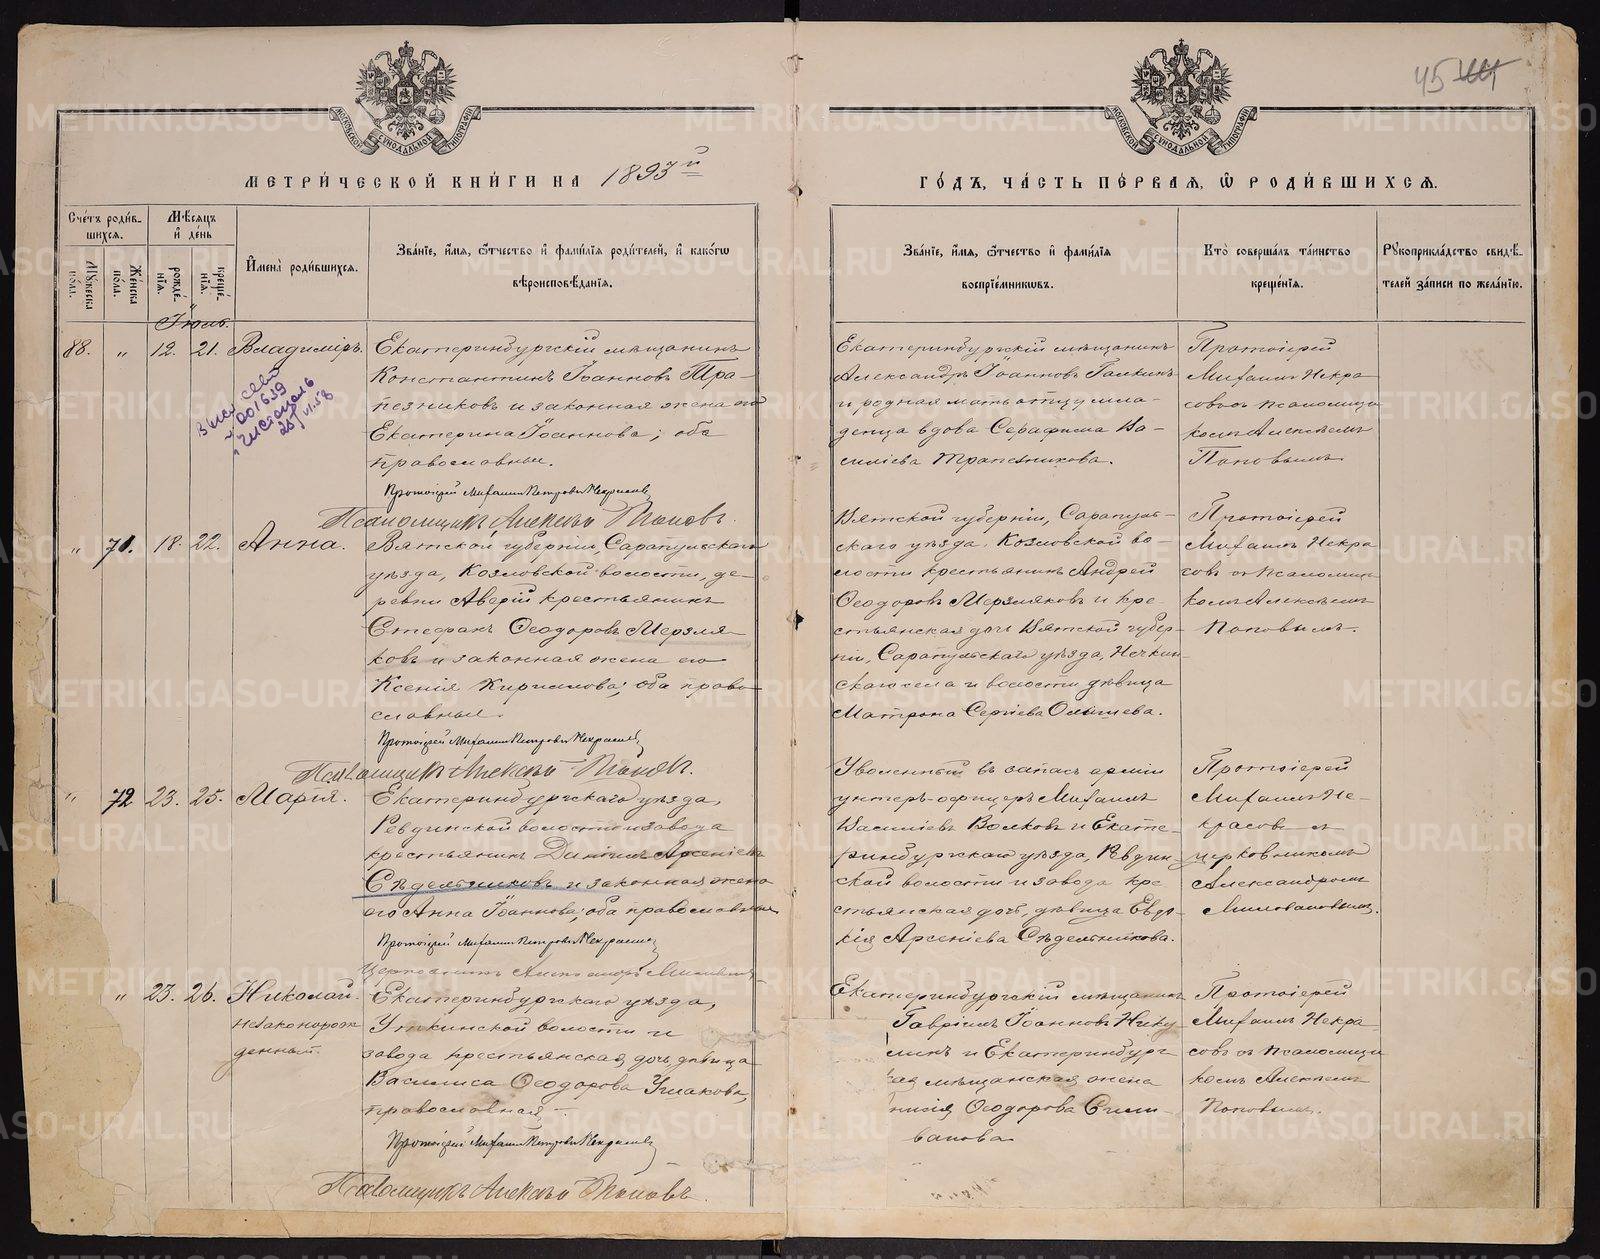 45
МОСКОВСКОЙ СѴНОДАЛЬНОЙ ТИПОГРАФІИ
МОСКОВСКОЙ СѴНОДАЛЬНОЙ ТИПОГРАФІИ
МЕТРИЧЕСКОЙ КНИГИ НА 1893й
ГОДЪ, ЧАСТЬ ПЕРВАЯ, Ѡ РОДИВШИХСЯ.
Счетъ родив-
шихся.
Мужеска пола.
Женска пола.
Мѣсяцъ
и день
рожде-
нія.
креще-
нія.
Имена родившихся.
Званіе, имя, отчество и фамилія родителей, и какого
вѣроисповѣданія.
Званіе, имя, отчество и фамилія
воспріемниковъ.
Кто совершалъ таинство
крещенія.
Рукоприкладство свидѣ-
телей записи по желанію.
Іюль.
88. " 12. 21. Владиміръ.
Екатеринбургскій мѣщанинъ
Константинъ Іоанновъ Тра-
пезниковъ и законная жена его
Екатерина Іоаннова; оба
православные.
Протоіерей Михаилъ Петровъ Некрасовъ
Псаломщикъ Алексѣй Поповъ.
Екатеринбургскій мѣщанинъ
Александръ Іоанновъ Галкинъ
и родная мать отцу мла-
денца вдова Серафима Ва-
силіева Трапезникова.
Протоіерей
Михаилъ Некра
совъ съ псаломщи
комъ Алексѣемъ
Поповымъ.
001639
" 71. 18. 22. Анна.
Вятской губерніи, Сарапульскаго
уѣзда, Козловской волости, де-
ревни Аверій крестьянинъ
Стефанъ Ѳеодоровъ Мерзля-
ковъ и законная жена его
Ксенія Кириллова; оба право
славные.
Протоіерей Михаилъ Петровъ Некрасовъ
Псаломщикъ Алексѣй Поповъ.
Вятской губерніи, Сарапуль-
скаго уѣзда, Козловской во-
лости крестьянинъ Андрей
Ѳеодоровъ Мерзляковъ и кре-
стьянская дочь Вятской губер-
ніи, Сарапульскаго уѣзда, Нечкин-
скаго села и волости дѣвица
Матрона Сергіева
Протоіерей
Михаилъ Некра
совъ съ псаломщи
комъ Алексѣемъ
Поповымъ.
" 72 23. 25. Марія.
Екатеринбургскаго уѣзда,
Ревдинской волости и завода
крестьянинъ Даніилъ Арсеніевъ
Сѣдельниковъ и законная жена
его Анна Іоаннова; оба православные
Протоіерей Михаилъ Петровъ Некрасовъ
Церковникъ Александръ
Уволенный въ запасъ арміи
унтеръ-офицеръ Михаилъ
Василіевъ Волковъ и Екате-
ринбургскаго уѣзда, Ревдин-
ской волости и завода кре
стьянская дочь, дѣвица Евдо-
кія Арсеніева Сѣдельникова.
Протоіерей
Михаилъ Не-
красовъ съ
церковникомъ
Александромъ
Миловановымъ.
" 23. 26. Николай.
незаконорож
денный.
Екатеринбургскаго уѣзда,
Уткинской волости и
завода крестьянская дочь, дѣвица
Василиса Ѳеодорова Ушакова,
православная.
Протоіерей Михаилъ Петровъ Некрасовъ
Псаломщикъ Алексѣй Поповъ.
Екатеринбургскій мѣщанинъ
Гавріилъ Іоанновъ Нику-
линъ и Екатеринбург
ая мѣщанская жена
Ѳеодорова Сили-
ванова
Протоіерей
Михаилъ Некра
совъ съ псаломщи
комъ Алексѣемъ
Поповымъ.
METRIKI.GASO-URAL.RU